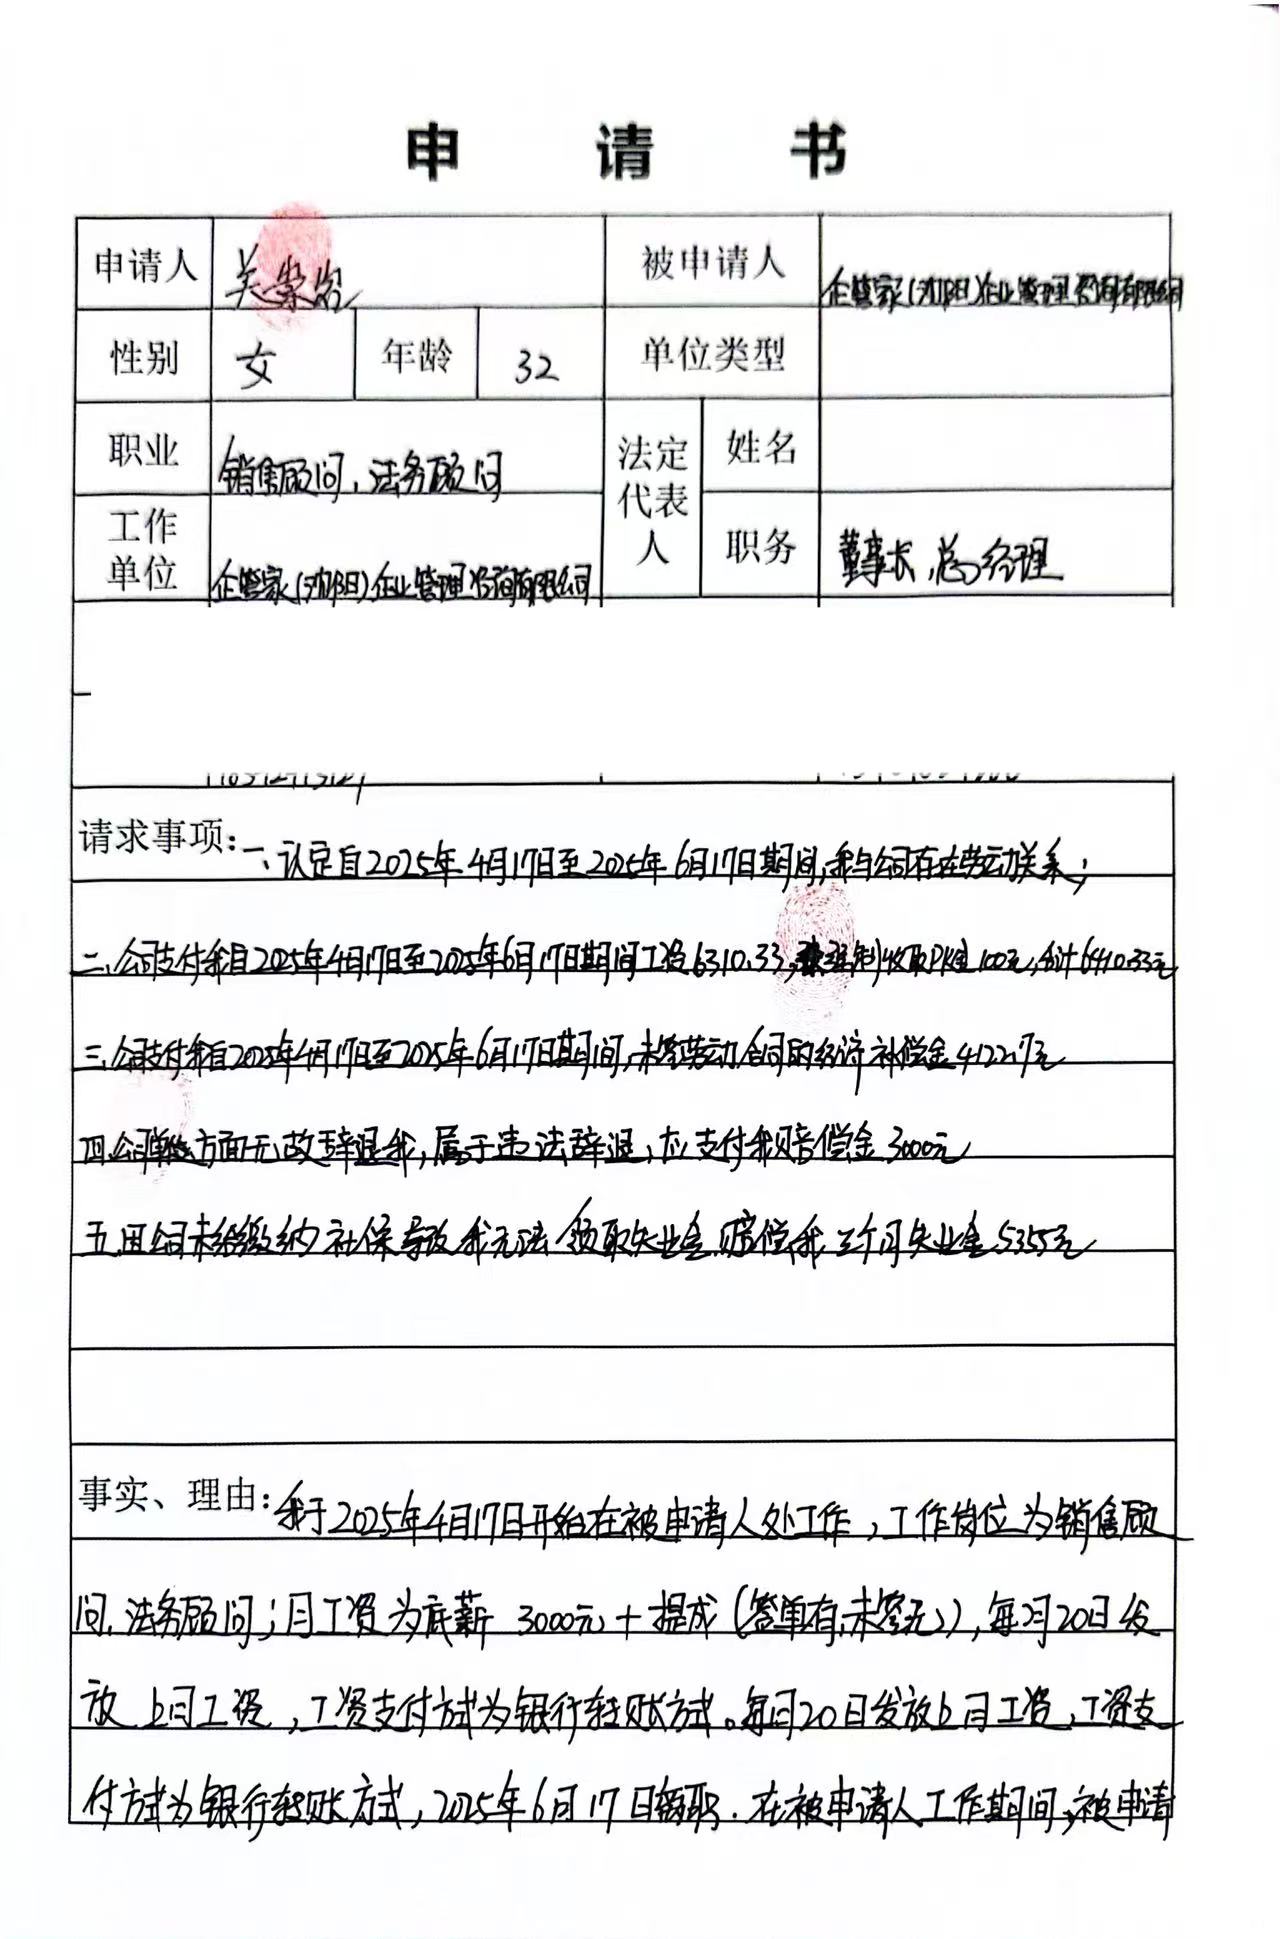 申请书
申请人 关崇岩 被申请人 企管家(沈阳)企业管理咨询有限公司
性别 女 年龄 32 单位类型
职业 销售顾问、法务顾问 法定代表人 姓名
工作单位 企管家(沈阳)企业管理咨询有限公司 职务 董事长,总经理
请求事项:一、认定自2025年4月17日至2025年6月17日期间,我与公司存在劳动关系;
二、公司支付我自2025年4月17日至2025年6月17日期间工资6310.33,被强制收取PK金100元,合计6410.33元
三、公司支付我自2025年4月17日至2025年6月17日期间,未签劳动合同的经济补偿金4122.7元
四、公司单方面无故辞退我,属于违法辞退,应支付我赔偿金3000元
五.因公司未给缴纳社保导致我无法领取失业金,赔偿我三个月失业金5355元
事实、理由:我于2025年4月17日开始在被申请人处工作,工作岗位为销售顾
问、法务顾问;月工资为底薪3000元+提成(签单有,未签无),每月20日发
放上月工资,工资支付方式为银行转账方式。每月20日发放上月工资,工资支
付方式为银行转账方式,2025年6月17日离职.在被申请人工作期间,被申请